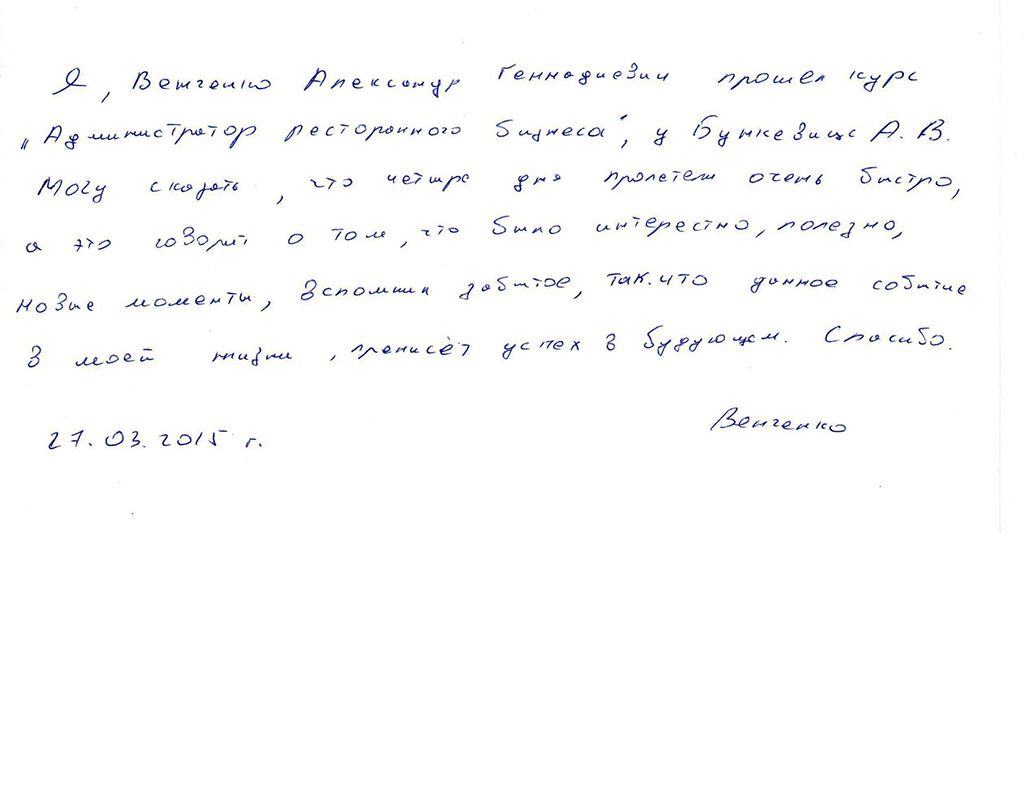 Я, Венгенко Александр Геннадиевич прошел курс
„Администратор ресторанного бизнеса", у Бункевица А. В.
Могу сказать, что четыре дня пролетели очень быстро,
а это говорит о том, что было интересно, полезно,
новые моменты, вспомнил забытое, так-что данное событие
в моей жизни, принисёт успех в будующем. Спасибо.
27.03.2015 г.
Венгенко